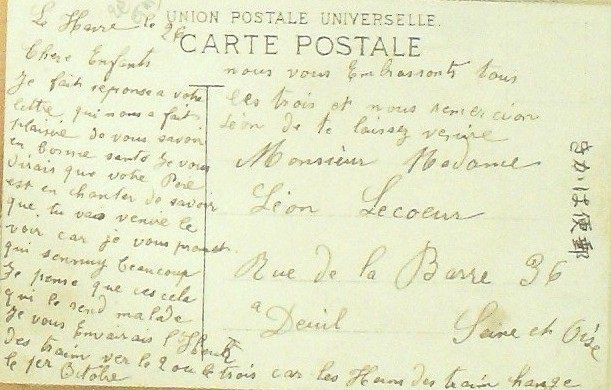 UNION POSTALE UNIVERSELLE.
CARTE POSTALE
きかは便郵
Le Havre le 26
Chere Enfants
Je fait reponse a votre
lettre qui nous a fait
plaisir de vous savoir
en bonne santé Je vous
dirais que votre Pere
est en chanter de savoir
que tu vas venire le
voir car je vous promet
qui sennuy beaucoup
Je pense que ces cela
qui le rend malade
Je vous Envairais l'Heure
des train ver le 2 ou le trois car les Heures des train change
le 1er Octobre
nous vous Embrassonts tous
les trois et nous remercion
Léon de te laissez venire
Monsieur Madame
Léon Lecoeur
Rue de la Barre 36
a Deuil Seine et Oise